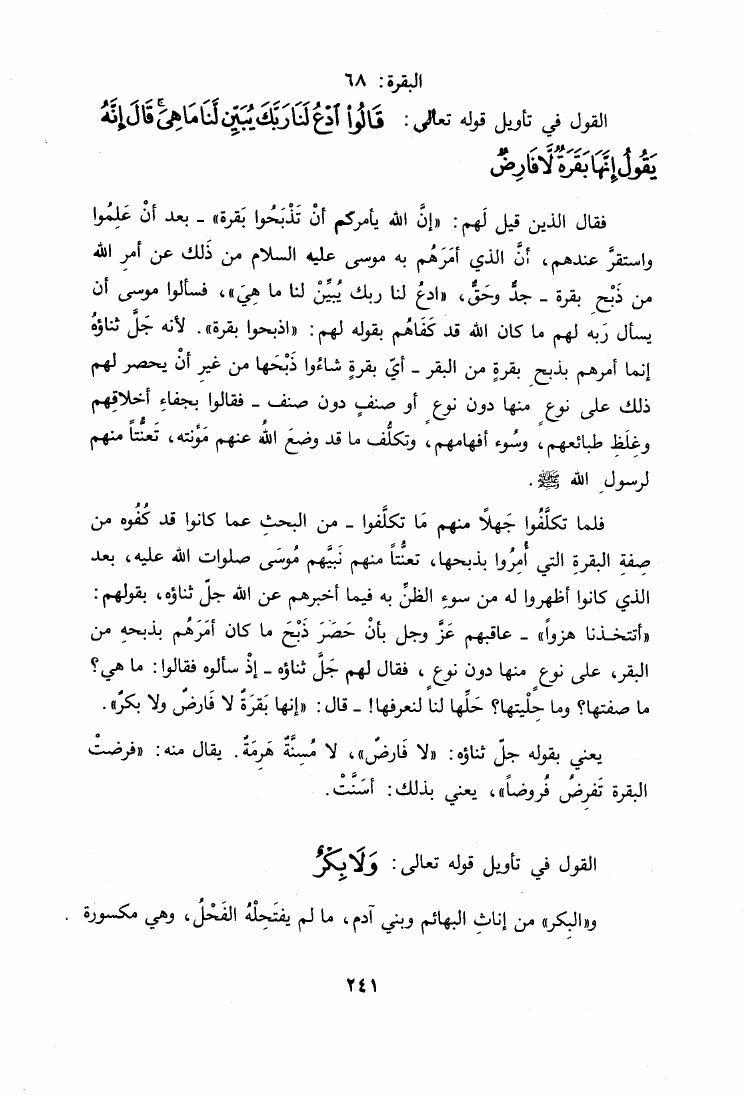 البقرة: ٦٨
القول في تأويل قوله تعالى: قَالُوا۟ ٱدْعُ لَنَا رَبَّكَ يُبَيِّن لَّنَا مَا هِىَ ۚ قَالَ إِنَّهُۥ
يَقُولُ إِنَّهَا بَقَرَةٌ لَّا فَارِضٌ
فقال الذين قيل لَهم: «إنَّ الله يأمركم أنْ تَذْبَحُوا بَقرة» ـ بعد أنْ عَلِمُوا
واستقرَّ عندهم، أنَّ الذي أمَرَهُم به موسى عليه السلام من ذَلك عن أمرِ الله
من ذَبْحِ بقرة ـ جدٌّ وحَقٌّ، «ادعُ لنا ربك يُبيِّنْ لنا ما هِيَ»، فسألوا موسى أن
يسأل رَبه لهم ما كان الله قد كَفَاهُم بقوله لهم: «اذبحوا بقرة». لأنه جَلَّ ثناؤهُ
إنما أمرهم بذبحِ بقرةٍ من البقر ـ أيّ بقرةٍ شاءُوا ذَبْحَها من غيرِ أنْ يحصر لهم
ذلك على نوعٍ منها دون نوعٍ أو صنفٍ دون صنف ـ فقالوا بجفاءِ أخلاقِهم
وغِلَظِ طبائعهم، وسُوء أفهامهم، وتكلُّف ما قد وضعَ اللهُ عنهم مَؤنته، تَعنُّتاً منهم
لرسولِ الله ﷺ.
فلما تكلَّفُوا جَهلاً منهم مَا تكلَّفوا ـ من البحثِ عما كانوا قد كُفُوه من
صِفةِ البقرةِ التي أُمِرُوا بذبحها، تعنُّتاً منهم نَبيَّهم مُوسَى صلوات الله عليه، بعد
الذي كانوا أظهروا له من سوءِ الظنِّ به فيما أخبرهم عن الله جلّ ثناؤه، بقولهم:
«أتتخذنا هزواً» ـ عاقبهم عَزَّ وجل بأنْ حَصَرَ ذَبْحَ ما كان أمَرَهُم بذبحهِ من
البقر، على نوعٍ منها دون نوعٍ، فقال لهم جَلَّ ثناؤه ـ إذْ سألوه فقالوا: ما هي؟
ما صفتها؟ وما حِلْيتها؟ حَلِّها لنا لنعرفها! ـ قال: «إنها بَقرَةٌ لا فَارضٌ ولا بكرٌ».
يعني بقوله جلّ ثناؤه: «لا فَارضٌ»، لا مُسِنَّةٌ هَرِمَةٌ. يقال منه: «فرضتْ
البقرة تَفرِضُ فُروضاً»، يعني بذلك: أسَنَّتْ.
القول في تأويل قوله تعالى: وَلَا بِكْرٌ
و«البِكر» من إناثِ البهائم وبني آدم، ما لم يفتَحِلْهُ الفَحْلُ، وهي مكسورة
٢٤١